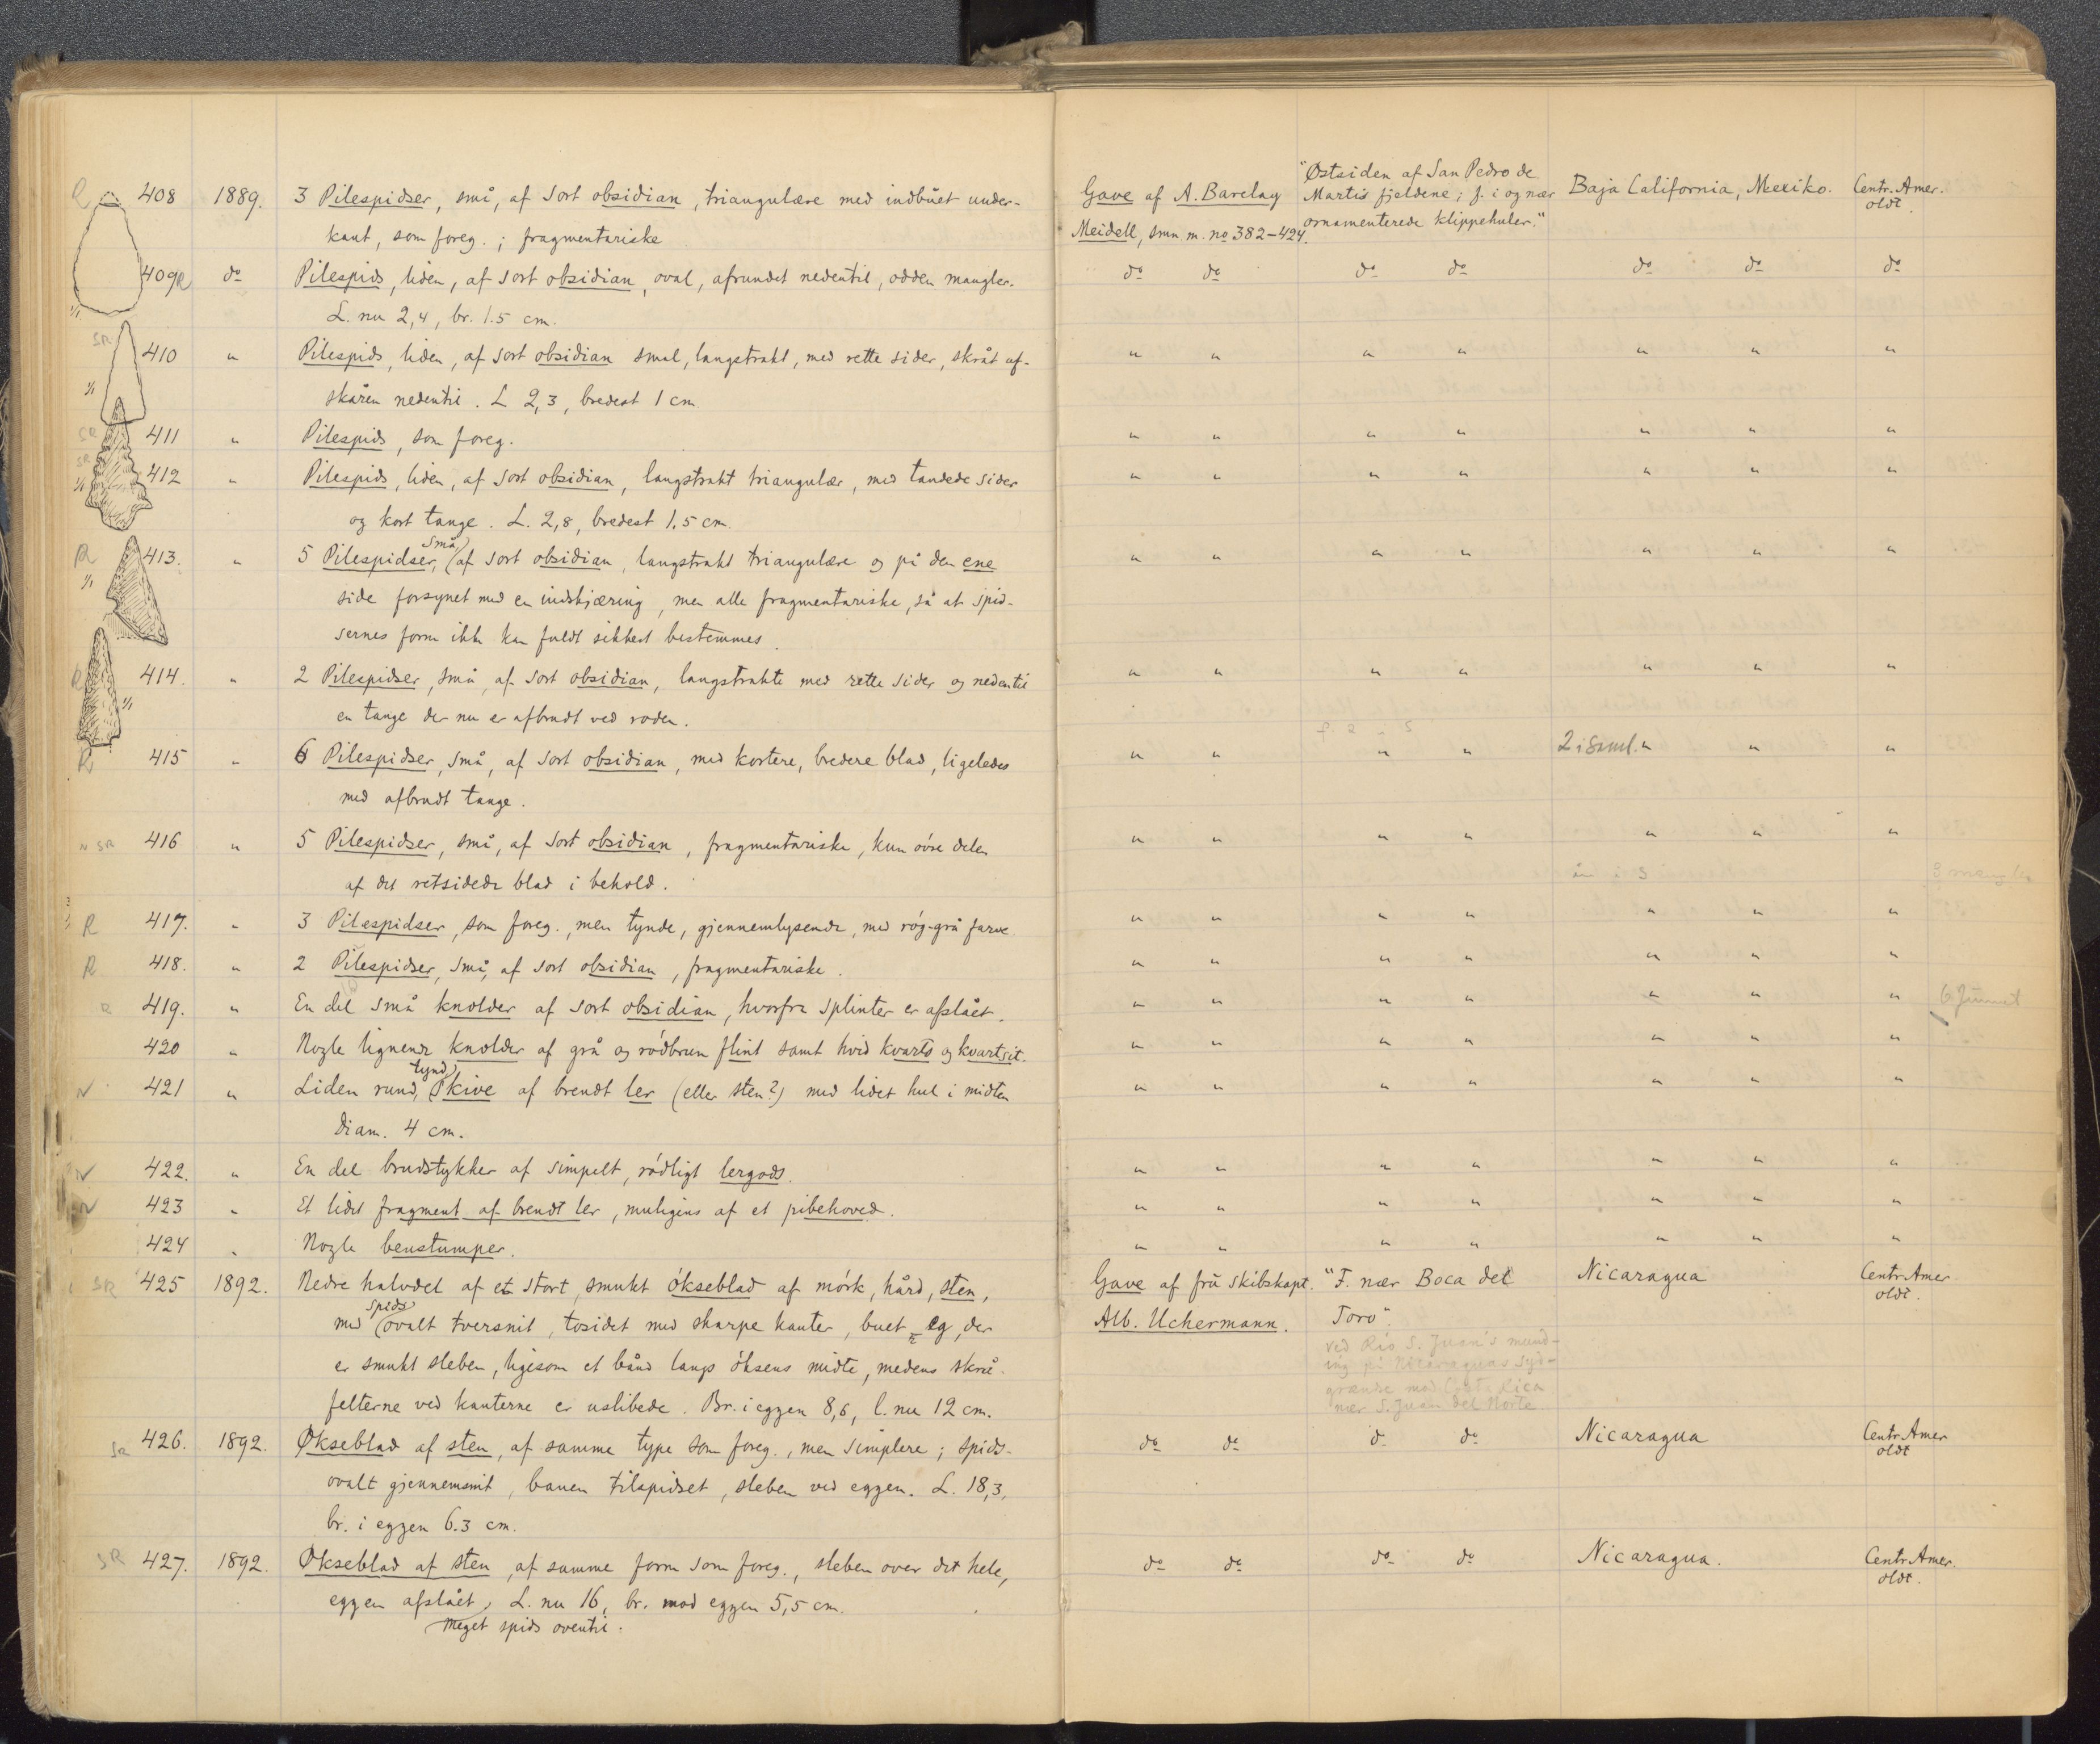 R 408 1889. 3 Pilespidser, små, af sort obsidian, triangulære med indbuet under- Gave af A. Barclay "Østsiden af San Pedro de Baja California, Mexiko. Centr. Amer.
kant, som foreg.; fragmentariske Meidell, smn m. no 382-424. Martis fjeldene; f. i og nær oldt.
ornamenterede klippehuler."
409 R do Pilespids, liden, af sort obsidian, oval, afrundet nedentil, odden mangler. do do do do do do do
1/1 L. nu 2,4, br. 1.5 cm.
SR 410 " Pilespids, liden, af sort obsidian smal, langstrakt, med rette sider, skråt af- " " " " " " "
1/1 skåren nedentil. L 2,3, bredest 1 cm.
SR 411 " Pilespids, som foreg. " " " " " " "
SR 1/1 412 " Pilespids, liden, af sort obsidian, langstrakt triangulær, med tandede sider " " " " " " "
og kort tange. L. 2,8, bredest 1.5 cm.
R 413. " 5 Pilespidser, små af sort obsidian, langstrakt triangulære og på den ene " " " " " " "
1/1 side forsynet med en indskjæring, men alle fragmentariske, så at spid-
sernes form ikke kan fuldt sikkert bestemmes.
R 414. " 2 Pilespidser, små, af sort obsidian, langstrakte med rette sider og nedentil " " " " " " "
1/1 en tange der nu er afbrudt ved roden.
R 415 " 6 Pilespidser, små, af sort obsidian, med kortere, bredere blad, ligeledes " " " " 2 i saml. " " "
med afbrudt tange.
SR 416 " 5 Pilespidser, små, af sort obsidian, fragmentariske, kun övre delen " " " " " " "
af det retsidede blad i behold. 3 mangler
R 417. " 3 Pilespidser, som foreg., men tynde, gjennemlysende, med røg-grå farve. " " " " " " "
R 418. " 2 Pilespidser, små, af sort obsidian, fragmentariske. " " " " " " "
R 419. " En del små knolder af sort obsidian, hvorfra splinter er afslået. " " " " " " " 6 funnet
420 " Nogle lignende knolder af grå og rödbrun flint samt hvid kvarts og kvartsit. " " " " " " "
421 " Liden rund, tynd skive af brendt ler (eller sten?) med lidet hul i midten " " " " " " "
diam. 4 cm.
422. " En del brudstykker af simpelt, rödligt lergods. " " " " " " "
423 " Et lidet fragment af brendt ler, muligens af et pibehoved. " " " " " " "
424 " Nogle benstumper. " " " " " " "
SR 425 1892. Nedre halvdel af et stort, smukt ökseblad af mörk, hård, sten, Gave af frü skibskapt. "F. nær Boca del Nicaragua Centr. Amer
med spids ovalt tversnit, tosidet med skarpe kanter, buet eg, der Alb. Uchermann. Toro". oldt.
er smukt sleben, ligesom et bånd langs öksens midte, medens skrå- ved Rio S. Juan's mund-
ing på Nicaraguas syd-
felterne ved kanterne er uslibede. Br. i eggen 8,6, l. nu 12 cm. grænse mod Costa Rica
nær S. Juan del Norte
SR 426. 1892. Økseblad af sten, af samme type som foreg., men simplere; spids- do do do do Nicaragua Centr. Amer
ovalt gjennemsnit, banen tilspidset, sleben ved eggen. L. 18,3, oldt
br. i eggen 6.3 cm.
SR 427. 1892. Økseblad af sten, af samme form som foreg., sleben over det hele, do do do do Nicaragua. Centr. Amer.
eggen afslået, L. nu 16, br. mod eggen 5,5 cm. oldt.
meget spids oventil.